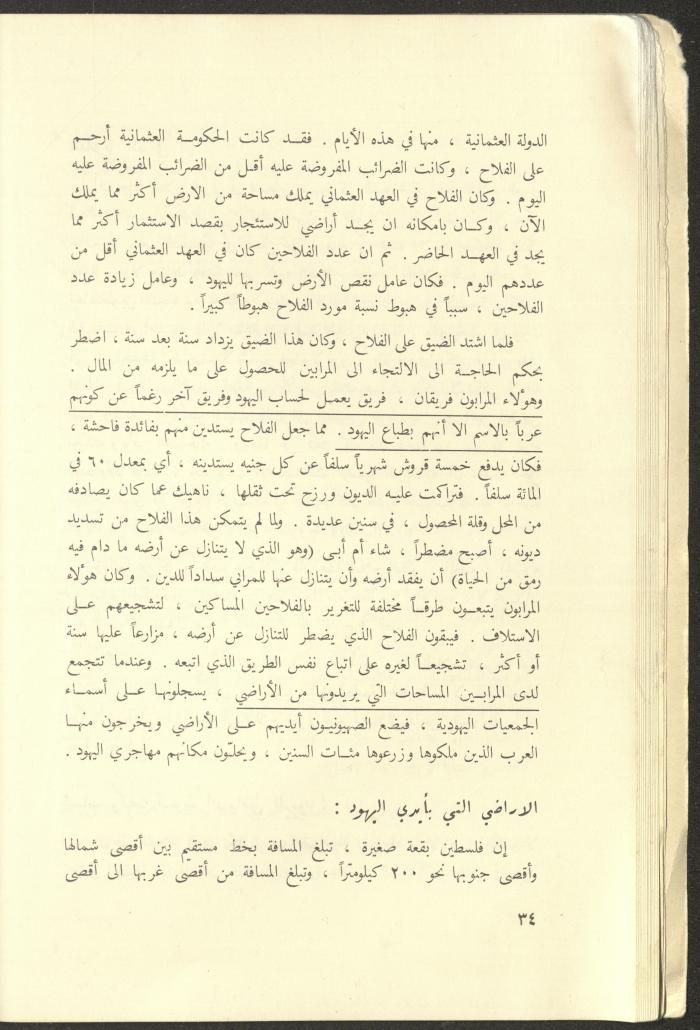 الدولة العثمانية ، منها في هذه الأيام . فقد كانت الحكومة العثمانية أرحم
على الفلاح ، وكانت الضرائب المفروضة عليه أقل من الضرائب المفروضة عليه
اليوم . وكان الفلاح في العهد العثماني يملك مساحة من الارض أكثر مما يملك
الآن ، وكان بامكانه ان يجد أراضي للاستئجار بقصد الاستثمار أكثر مما
يجد في العهد الحاضر . ثم ان عدد الفلاحين كان في العهد العثماني أقل من
عددهم اليوم . فكان عامل نقص الأرض وتسربها لليهود ، وعامل زيادة عدد
الفلاحين ، سبباً في هبوط نسبة مورد الفلاح هبوطاً كبيراً .
فلما اشتد الضيق على الفلاح ، وكان هذا الضيق يزداد سنة بعد سنة ، اضطر
بحكم الحاجة الى الالتجاء الى المرابين للحصول على ما يلزمه من المال .
وهؤلاء المرابون فريقان ، فريق يعمل لحساب اليهود وفريق آخر رغماً عن كونهم
عرباً بالاسم الا أنهم بطباع اليهود . مما جعل الفلاح يستدين منهم بفائدة فاحشة ،
فكان يدفع خمسة قروش شهرياً سلفاً عن كل جنيه يستدينه ، أي بمعدل ٦٠ في
المائة سلفاً . فتراكمت عليه الديون ورزح تحت ثقلها ، ناهيك عما كان يصادفه
من المحل وقلة المحصول ، في سنين عديدة . ولما لم يتمكن هذا الفلاح من تسديد
ديونه ، أصبح مضطراً ، شاء أم أبى (وهو الذي لا يتنازل عن أرضه ما دام فيه
رمق من الحياة) أن يفقد أرضه وأن يتنازل عنها للمرابي سداداً للدين . وكان هؤلاء
المرابون يتبعون طرقاً مختلفة للتغرير بالفلاحين المساكين ، لتشجيعهم على
الاستلاف . فيبقون الفلاح الذي يضطر للتنازل عن أرضه ، مزارعاً عليها سنة
أو أكثر ، تشجيعاً لغيره على اتباع نفس الطريق الذي اتبعه . وعندما تتجمع
لدى المرابين المساحات التي يريدونها من الأراضي ، يسجلونها على أسماء
الجمعيات اليهودية ، فيضع الصهيونيون أيديهم على الأراضي ويخرجون منها
العرب الذين ملكوها وزرعوها مئات السنين ، ويحلّون مكانهم مهاجري اليهود .
الاراضي التي بأيدي اليهود :
إن فلسطين بقعة صغيرة ، تبلغ المسافة بخط مستقيم بين أقصى شمالها
وأقصى جنوبها نحو ٢٠٠ كيلومتراً ، وتبلغ المسافة من أقصى غربها الى أقصى
٣٤